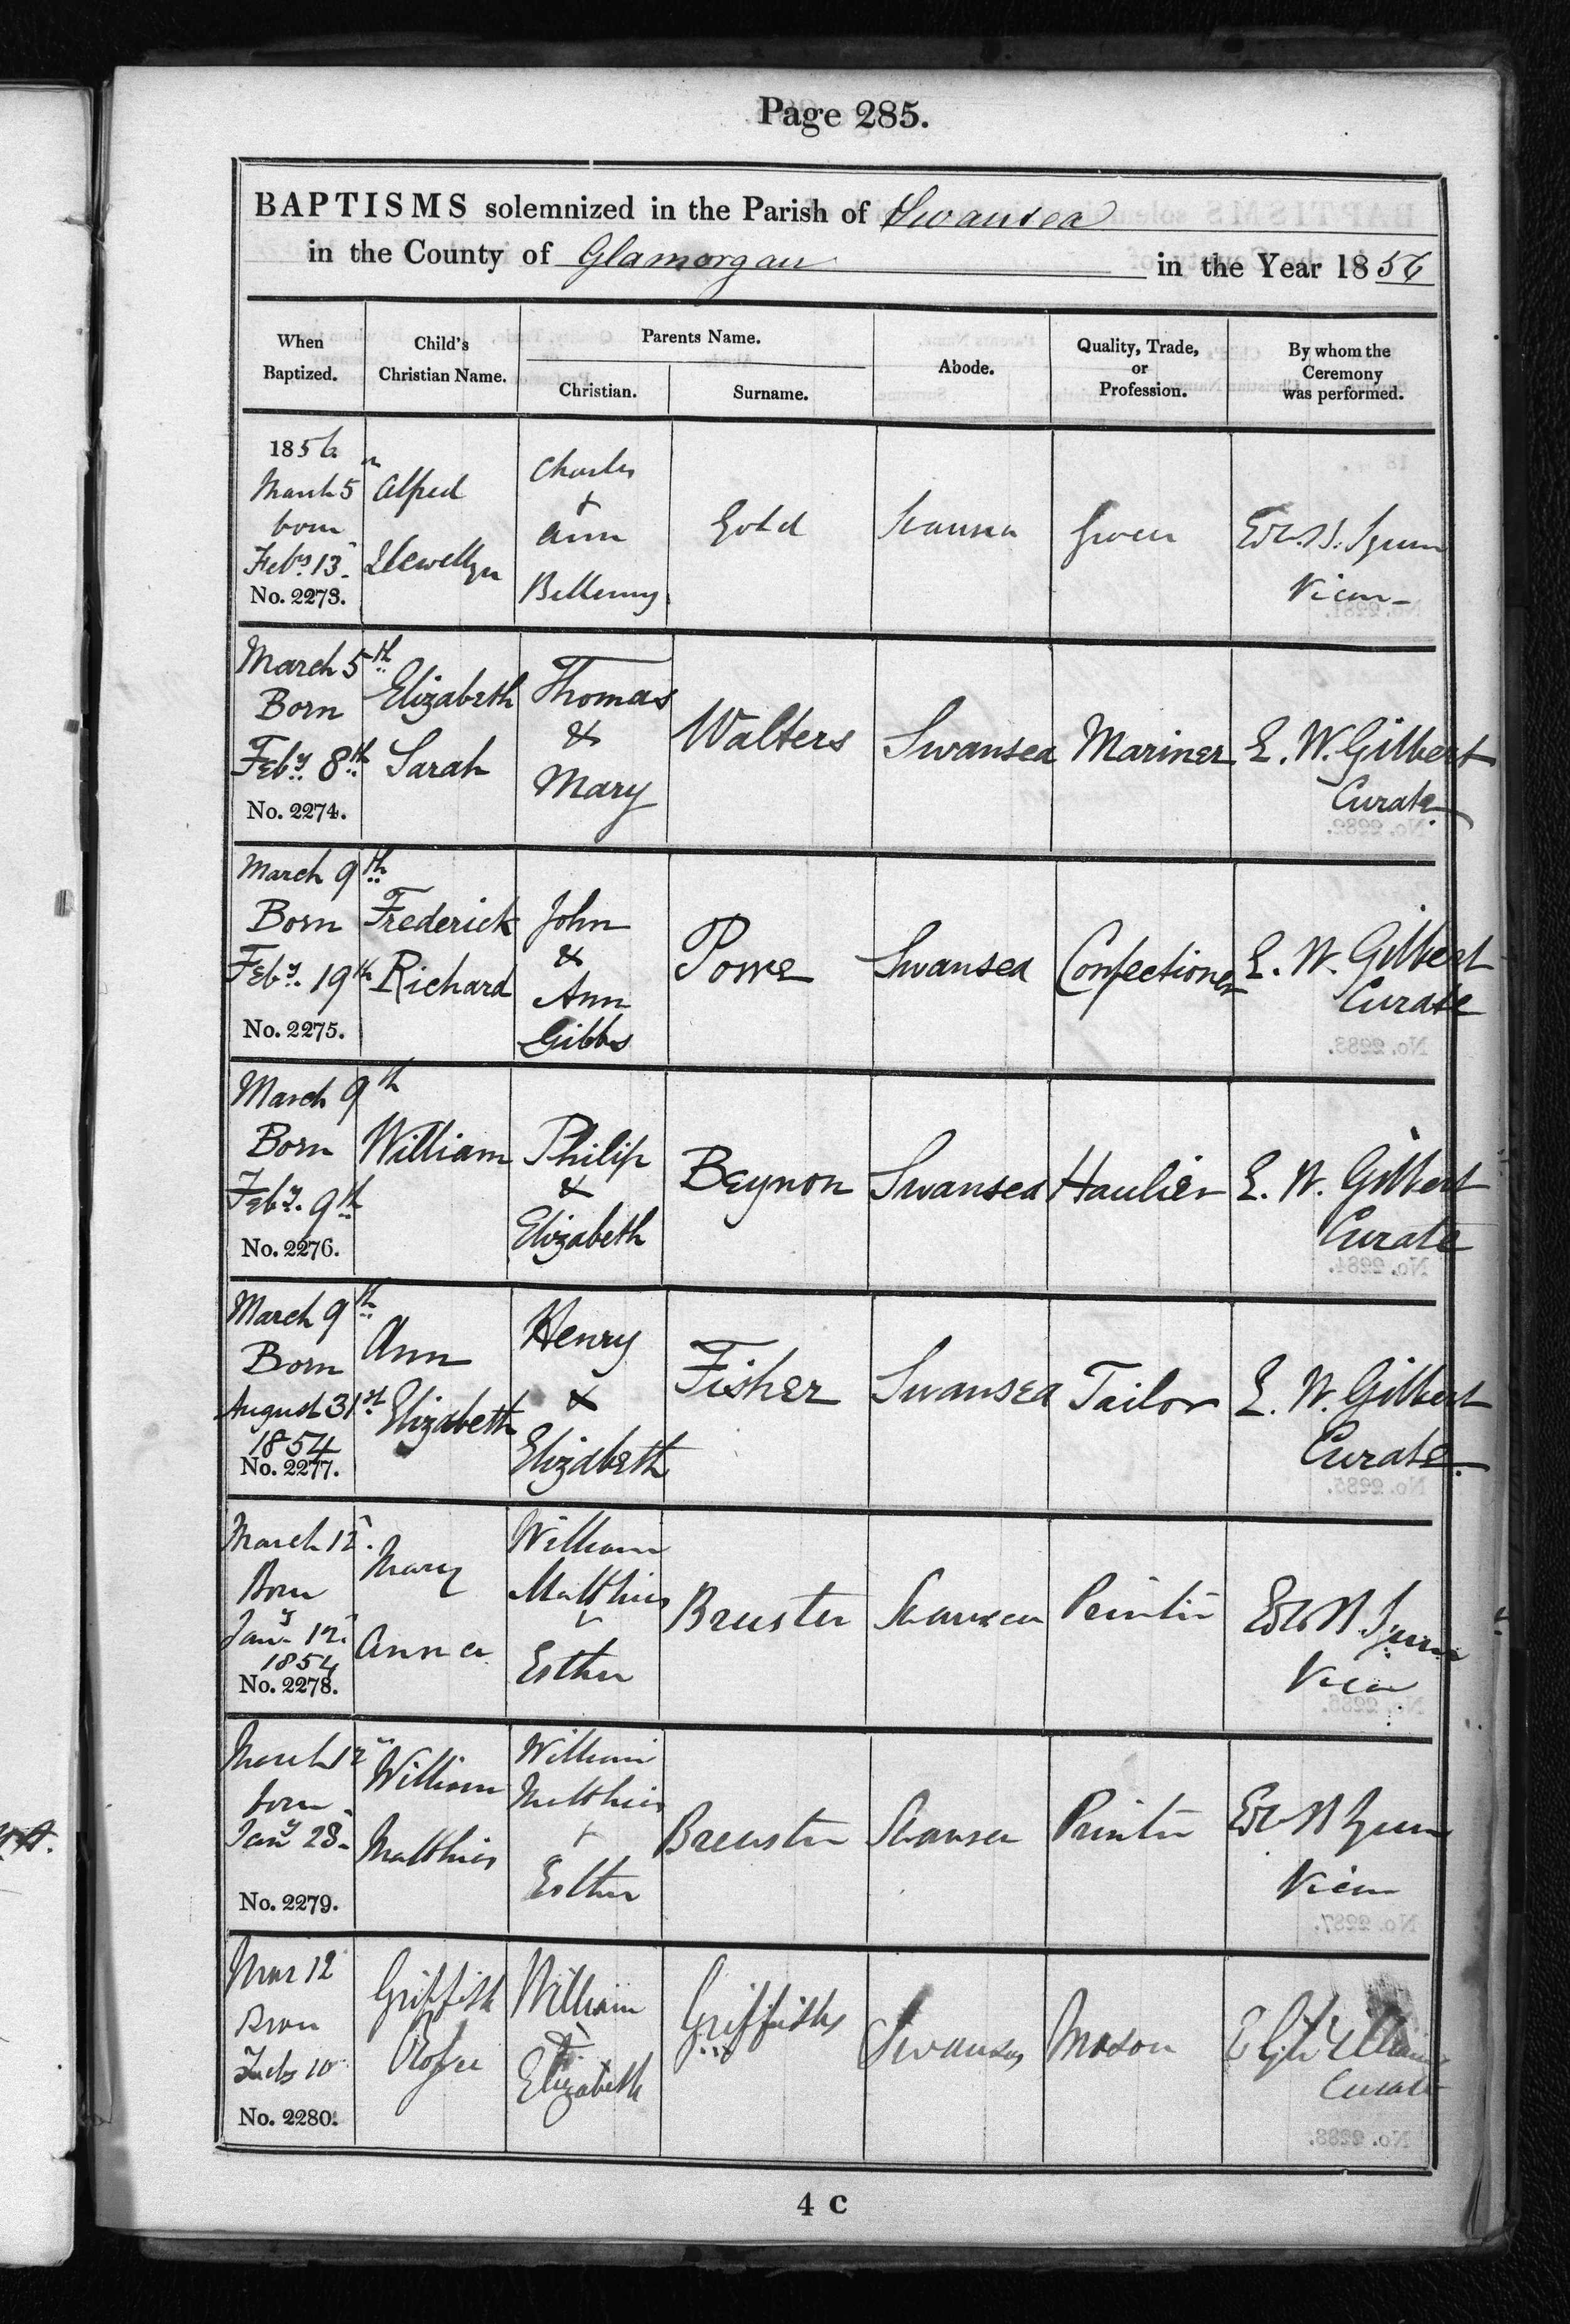 Page 285.
BAPTISMS solemnized in the Parish of Swansea
in the County of Glamorgan in the Year 1856
When Baptized.
Child's Christian Name.
Parents Name.
Christian.
Surname.
Abode.
Quality, Trade, or Profession.
By whom the Ceremony was performed.
1856
March 5
born
Feby 13
No. 2273.
Alfred
Llewellyn
Charles
+
Ann
Bellamy
Gold
Swansea
Grocer
Vicar
March 5th
Born
Feby 8th
No. 2274.
Elizabeth
Sarah
Thomas
&
Mary
Walters
Swansea
Mariner
E. W. Gilbert
Curate
March 9th
Born
Feby. 19th
No. 2275.
Frederick
Richard
John
&
Ann
Gibbs
Powe
Swansea
Confectioner
E. W. Gilbert
Curate
March 9th
Born
Feby. 9th
No. 2276.
William
Philip
&
Elizabeth
Beynon
Swansea
Haulier
E. W. Gilbert
Curate
March 9th
Born
August 31st
1854
No. 2277.
Ann
Elizabeth
Henry
&
Elizabeth
Fisher
Swansea
Tailor
E. W. Gilbert
Curate
March 12
Born
Jany 12
1854
No. 2278.
Mary
Anna
William
Matthias
+
Esther
Brewster
Swansea
Printer
Vicar
March 12
born
Jany 28
No. 2279.
William
Matthias
William
Matthias
+
Esther
Brewster
Swansea
Printer
Vicar
Mar 12
Born
Feby 10
No. 2280.
Griffith
William
&
Elizabeth
Griffiths
Swansea
Mason
Curate
4 C